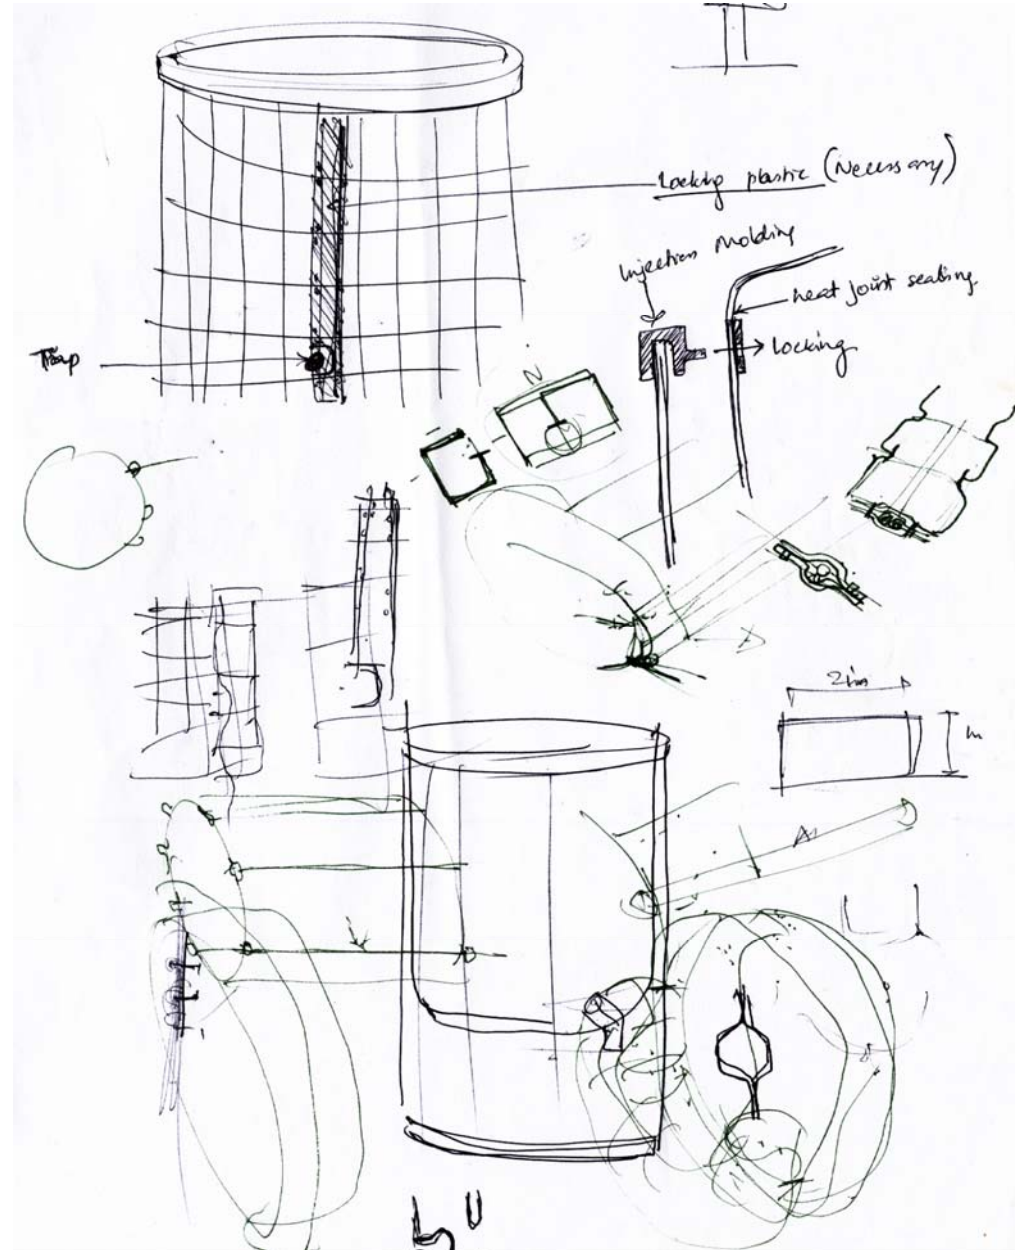 Locking plastic (Necessary)
Injection Molding
heat joint sealing
Locking
N